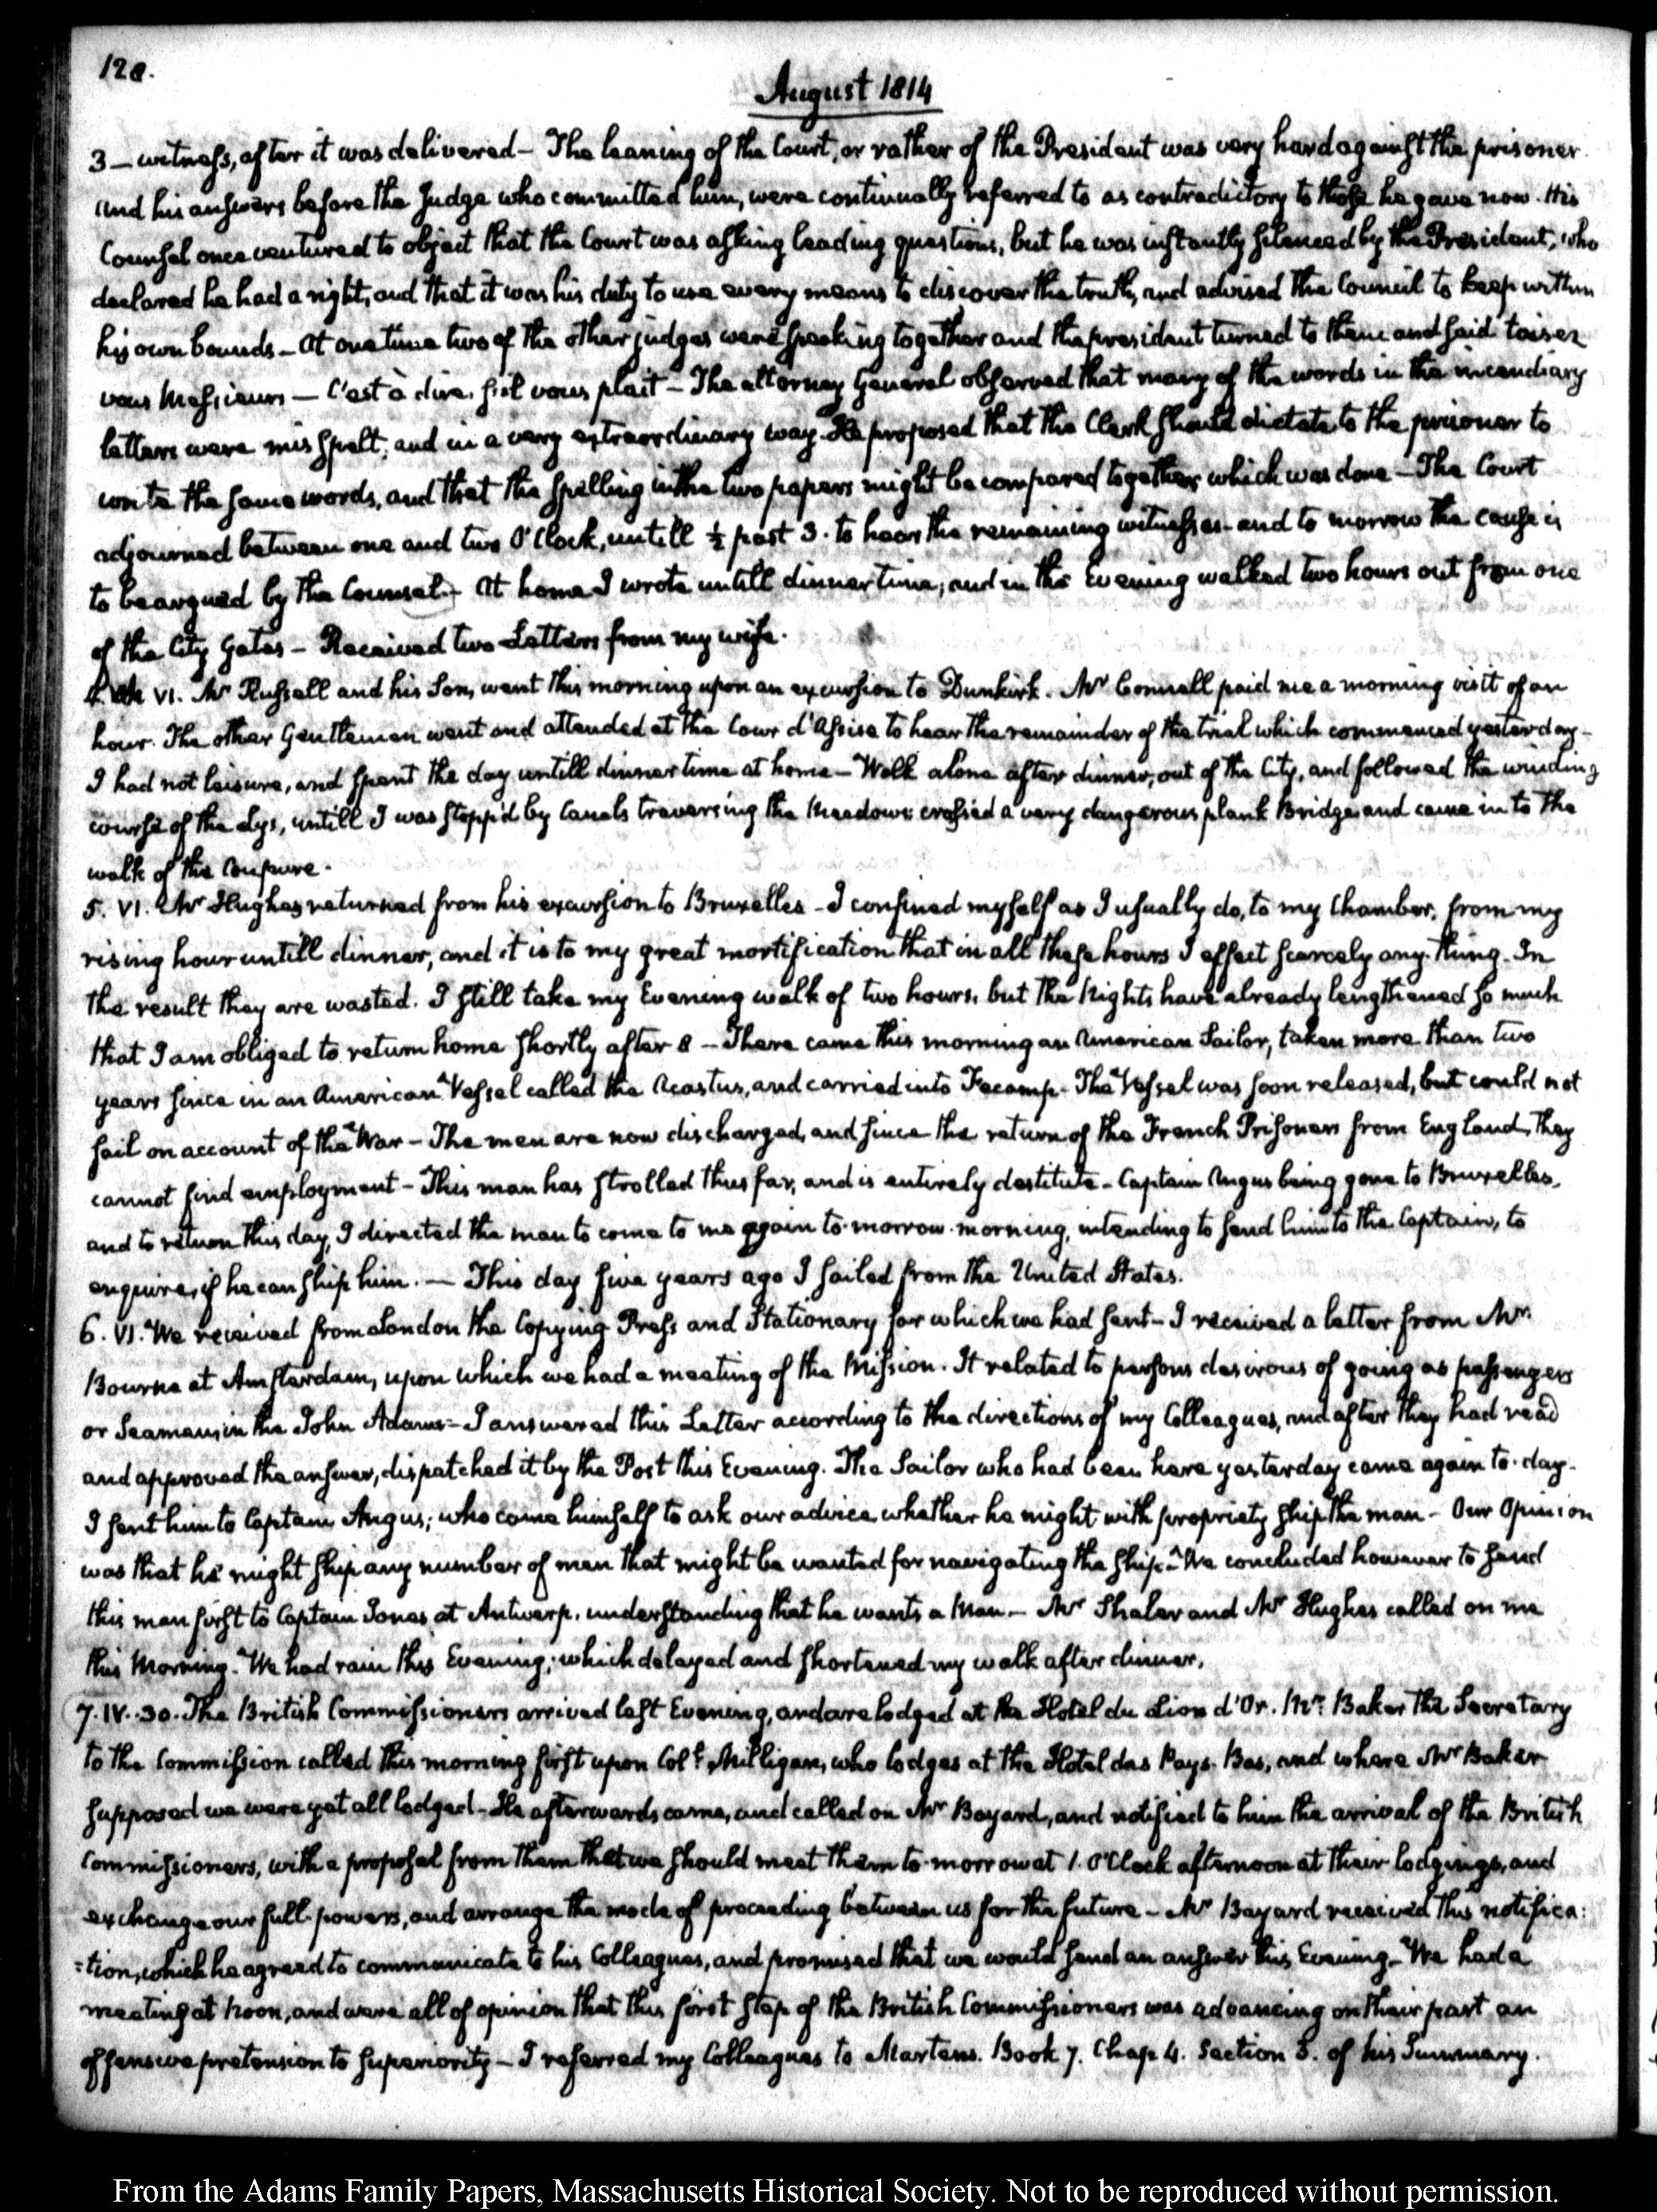 120.
August 1814
3 — witness, after it was delivered — The leaning of the Court, or rather of the President was very hard against the prisoner
and his answers before the Judge who committed him, were continually referred to as contradictory to those he gave now. His
Counsel once ventured to object that the Court was asking leading questions, but he was instantly silenced by the President, who
declared he had a right, and that it was his duty to use every means to discover the truth, and advised the Council to keep within
his own bounds — At one time two of the other judges were speaking together and the president turned to them and said taisez
vous Messieurs — C'est à dire, s'il vous plait — The attorney General observed that many of the words in the incendiary
letters were mis spelt, and in a very extraordinary way. He proposed that the Clerk should dictate to the prisoner to
write the same words, and that the spelling in the two papers might be compared together, which was done — The Court
adjourned between one and two O'Clock, untill ½ past 3. to hear the remaining witnesses — and to morrow the cause is
to be argued by the Counsel. — At home I wrote untill dinner time, and in the Evening walked two hours out from one
of the City Gates — Received two Letters from my wife.
4. VI. Mr Russell and his Son, went this morning upon an excursion to Dunkirk. Mr Connell paid me a morning visit of an
hour. The other Gentlemen went and attended at the Cour d'Assise to hear the remainder of the trial which commenced yesterday —
I had not leisure, and spent the day untill dinner time at home — Walk alone after dinner, out of the City, and followed the winding
course of the Lys, untill I was stopp'd by Canals traversing the Meadows crossed a very dangerous plank Bridge and came in to the
walk of the Coupure.
5. VI. Mr Hughes returned from his excursion to Bruxelles — I confined myself as I usually do, to my Chamber, from my
rising hour untill dinner, and it is to my great mortification that in all these hours I effect scarcely any thing. In
the result they are wasted. I still take my Evening walk of two hours, but the Nights have already lengthened so much
that I am obliged to return home shortly after 8 — There came this morning an American Sailor, taken more than two
years since in an American Vessel called the Acastus, and carried into Fecamp. The Vessel was soon released, but could not
sail on account of the War — The men are now discharged, and since the return of the French Prisoners from England, they
cannot find employment — This man has strolled thus far, and is entirely destitute — Captain Angus being gone to Bruxelles,
and to return this day, I directed the man to come to me again to-morrow morning, intending to send him to the Captain, to
enquire, if he can ship him. — This day five years ago I sailed from the United States.
6. VI. We received from London the Copying Press and Stationary for which we had sent — I received a letter from Mr.
Bourne at Amsterdam, upon which we had a meeting of the Mission. It related to persons desirous of going as passengers
or Seamen, in the John Adams — I answered this Letter according to the directions of my Colleagues, and after they had read
and approved the answer, dispatched it by the Post this Evening. The Sailor who had been here yesterday came again to-day.
I sent him to Captain Angus; who came himself to ask our advice whether he might with propriety ship the man — Our Opinion
was that he might ship any number of men that might be wanted for navigating the ship — We concluded however to send
this man first to Captain Jones, at Antwerp, understanding that he wants a Man — Mr Shaler and Mr Hughes called on me
this Morning. We had rain this Evening; which delayed and shortened my walk after dinner.
7. IV. 30. The British Commissioners arrived last Evening, and are lodged at the Hotel du Lion d'Or. Mr. Baker the Secretary
to the Commission called this morning first upon Coll. Milligan, who lodges at the Hotel des Pays-Bas, and where Mr Baker
supposed we were yet all lodged — He afterwards came, and called on Mr Bayard, and notified to him the arrival of the British
Commissioners, with a proposal from them that we should meet them to-morrow at 1. O'Clock afternoon at their lodgings, and
exchange our full powers, and arrange the mode of proceeding between us for the future — Mr Bayard received this notifica:
:tion, which he agreed to communicate to his Colleagues, and promised that we would send an answer this Evening — We had a
meeting at Noon, and were all of opinion that this first step of the British Commissioners was advancing on their part an
offensive pretension to superiority — I referred my Colleagues to Martens. Book 7. Chap 4. Section 3. of his Summary.
From the Adams Family Papers, Massachusetts Historical Society. Not to be reproduced without permission.